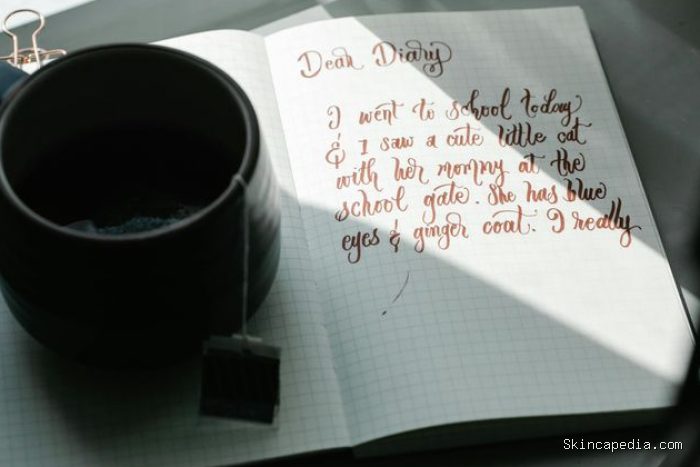 Dear Diary
I went to school today
& I saw a cute little cat
with her mommy at the
school gate. She has blue
eyes & ginger coat. I really
Skincapedia.com